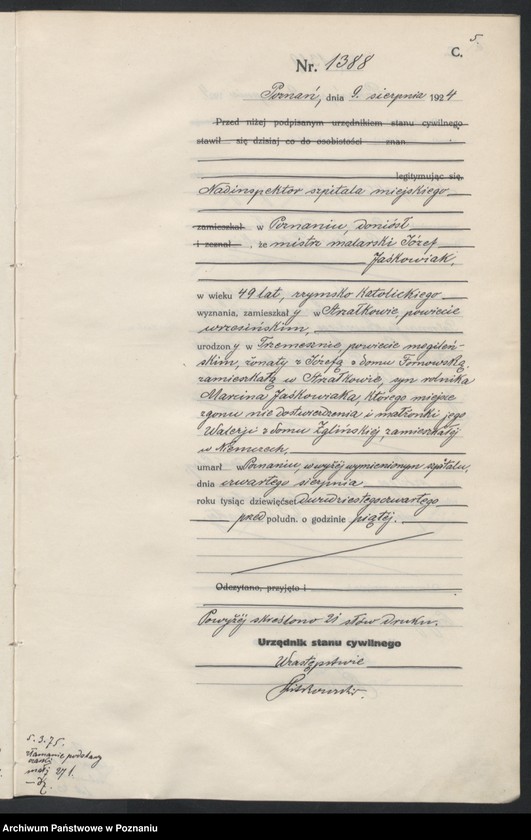 5.
C.
Nr. 1388
Poznań, dnia 9. sierpnia 1924
Przed niżej podpisanym urzędnikiem stanu cywilnego
stawił się dzisiaj co do osobistości znan
legitymując się,
Nadinspektor szpitala miejskiego
zamieszkał w Poznaniu, doniósł
i zeznał, że mistrz malarski Józef
Jaśkowiak,
w wieku 49 lat, rzymsko katolickiego
wyznania, zamieszkały w Strzałkowie, powiecie
wrzesińskim,
urodzony w Trzemesznie, powiecie mogileń-
skim, żonaty z Józefą z domu
zamieszkałą w Strzałkowie, syn rolnika
Marcina Jaśkowiaka, którego miejsce
zgonu nie dostwierdzenia i małżonki jego
Walerji z domu Zglińskiej, zamieszkałej
w Niemczech,
umarł w Poznaniu, w wyżej wymienionym szpitalu,
dnia czwartego sierpnia
roku tysiąc dziewięćset dwudziestegoczwartego
przed południ. o godzinie piątej.
Odczytano, przyjęto i
Powyżej skreślono 21 słów druku.
Urzędnik stanu cywilnego
W zastępstwie
5.3.75.
złamanie podstawy
czaszki
Archiwum Państwowe w Poznaniu